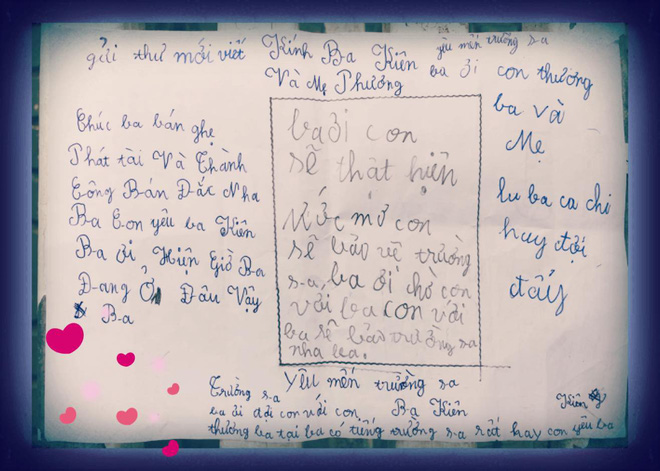 gửi thư mới viết Kính Ba Kiên yêu mến trường sa
Và Mẹ Phương ba ơi con thương
ba và
Mẹ
lu ba ca chi
huy đợi
đấy
Chúc ba bán ghẹ
Phát tài Và Thành
Công Bán Đắc Nha
Ba Con yêu ba Kiên
Ba ơi Hiện Giờ Ba
Đang Ở Đâu Vậy
Ba
ba ơi con
sẽ thật hiện
Nước mơ con
sẽ bảo vệ trường
sa, ba ơi chờ con
với ba con với
ba sẽ bảo trường sa
nha ba.
Yêu mến trường sa
Trường sa
ba ơi đợi con với con Ba Kiên Kiên
thương ba tại ba có tiếng trường sa rất hay con yêu ba